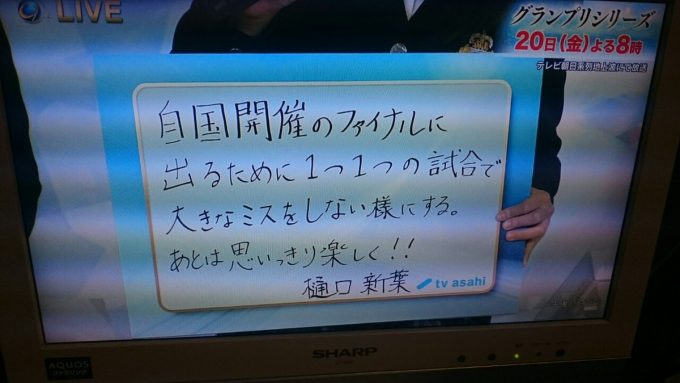 LIVE
グランプリシリーズ
20日(金)よる8時
テレビ朝日系列地上波にて放送
自国開催のファイナルに
出るために1つ1つの試合で
大きなミスをしない様にする。
あとは思いっきり楽しく!!
樋口 新葉
tv asahi
SHARP
AQUOS